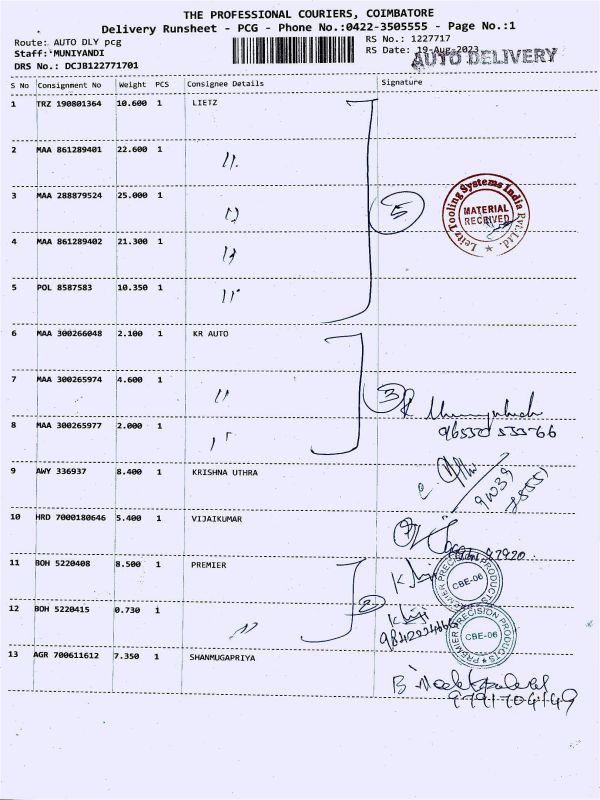 THE PROFESSIONAL COURIERS, COIMBATORE
Delivery Runsheet - PCG - Phone No.:0422-3505555 - Page No.:1
Route: AUTO DLY pcg
RS No.: 1227717
Staff: MUNIYANDI
RS Date: 19-Aug-2023
AUTO DELIVERY
DRS No.: DCJB122771701
S No Consignment No Weight PCS Consignee Details Signature
1 TRZ 190801364 10.600 1 LIETZ
2 MAA 861289401 22.600 1 〃
3 MAA 288879524 25.000 1 〃
5
Leitz Tooling Systems India Pvt. Ltd.
MATERIAL RECEIVED
4 MAA 861289402 21.300 1 〃
5 POL 8587583 10.350 1 〃
6 MAA 300266048 2.100 1 KR AUTO
7 MAA 300265974 4.600 1 〃
3
8 MAA 300265977 2.000 1 〃
9 AWY 336937 8.400 1 KRISHNA UTHRA
10 HRD 7000180646 5.400 1 VIJAIKUMAR
11 BOH 5220408 8.500 1 PREMIER
PREMIER PRECISION PRODUCTS
CBE-06
2
12 BOH 5220415 0.730 1 〃
PREMIER PRECISION PRODUCTS
CBE-06
13 AGR 700611612 7.350 1 SHANMUGAPRIYA
9791704149